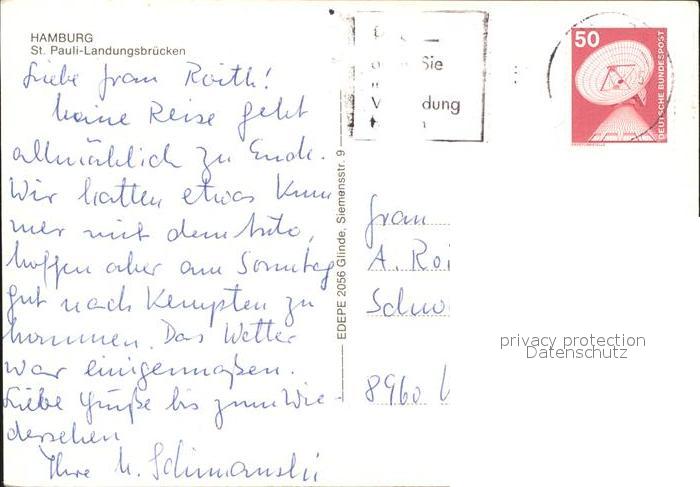 HAMBURG
St. Pauli-Landungsbrücken
Liebe Frau Roith!
keine Reise geht
allmählich zu Ende.
Wir hatten etwas Kum
mer mit dem Auto,
hoffen aber am Sonntag
gut nach Kempten zu
kommen. Das Wetter
war einigermaßen.
Liebe Grüße bis zum Wie-
dersehen
Ihre M. Schimanski
EDEPE 2056 Glinde, Siemensstr. 9
Sie
dung
50
DEUTSCHE BUNDESPOST
Frau
A. Roi
Schw
8960
privacy protection
Datenschutz